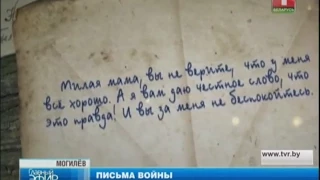 БЕЛАРУСЬ
Милая мама, вы не верите, что у меня
всё хорошо. А я вам даю честное слово, что
это правда! И вы за меня не беспокойтесь.
www.tvr.by
МОГИЛЁВ
Главный эфир
ПИСЬМА ВОЙНЫ